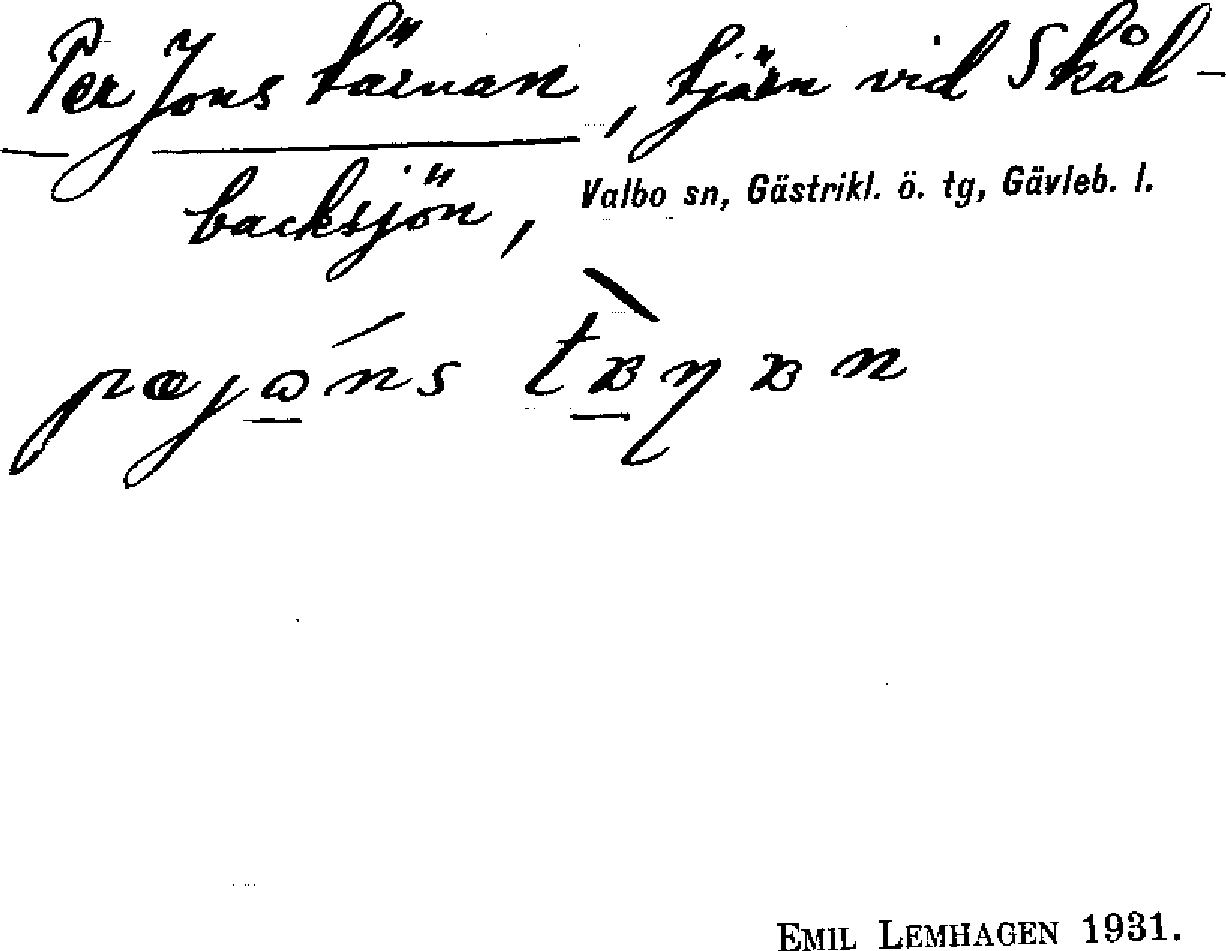 Per Jons tärnan, tjärn vid Skål-
backsjön, Valbo sn, Gästrikl. ö. tg, Gävleb. l.
EMIL LEMHAGEN 1931.